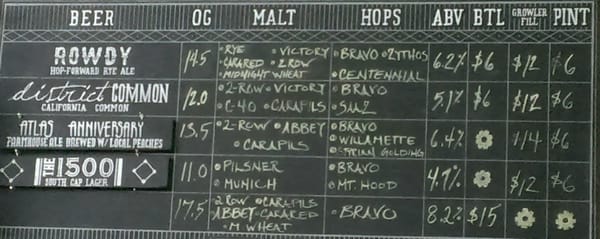 BEER OG MALT HOPS ABV BTL GROWLER FILL PINT
ROWDY
HOP-FORWARD RYE ALE
14.5
RYE VICTORY
CARARED 2 ROW
MIDNIGHT WHEAT
BRAVO ZYTHOS
CENTENNIAL
6.2% $6 $12 $6
district COMMON
CALIFORNIA COMMON
12.0
2-ROW VICTORY
C-40 CARAPILS
BRAVO
SAAZ
5.1% $6 $12 $6
ATLAS ANNIVERSARY
FARMHOUSE ALE BREWED W/ LOCAL PEACHES
13.5
2-ROW ABBEY
CARAPILS
BRAVO
WILLAMETTE
STYRIAN GOLDING
6.4% $14 $6
THE 1500
SOUTH CAP LAGER
11.0
PILSNER
MUNICH
BRAVO
MT. HOOD
4.7% $12 $6
17.5
2 ROW CARAPILS
ABBEY CARARED
M WHEAT
BRAVO
8.2% $15